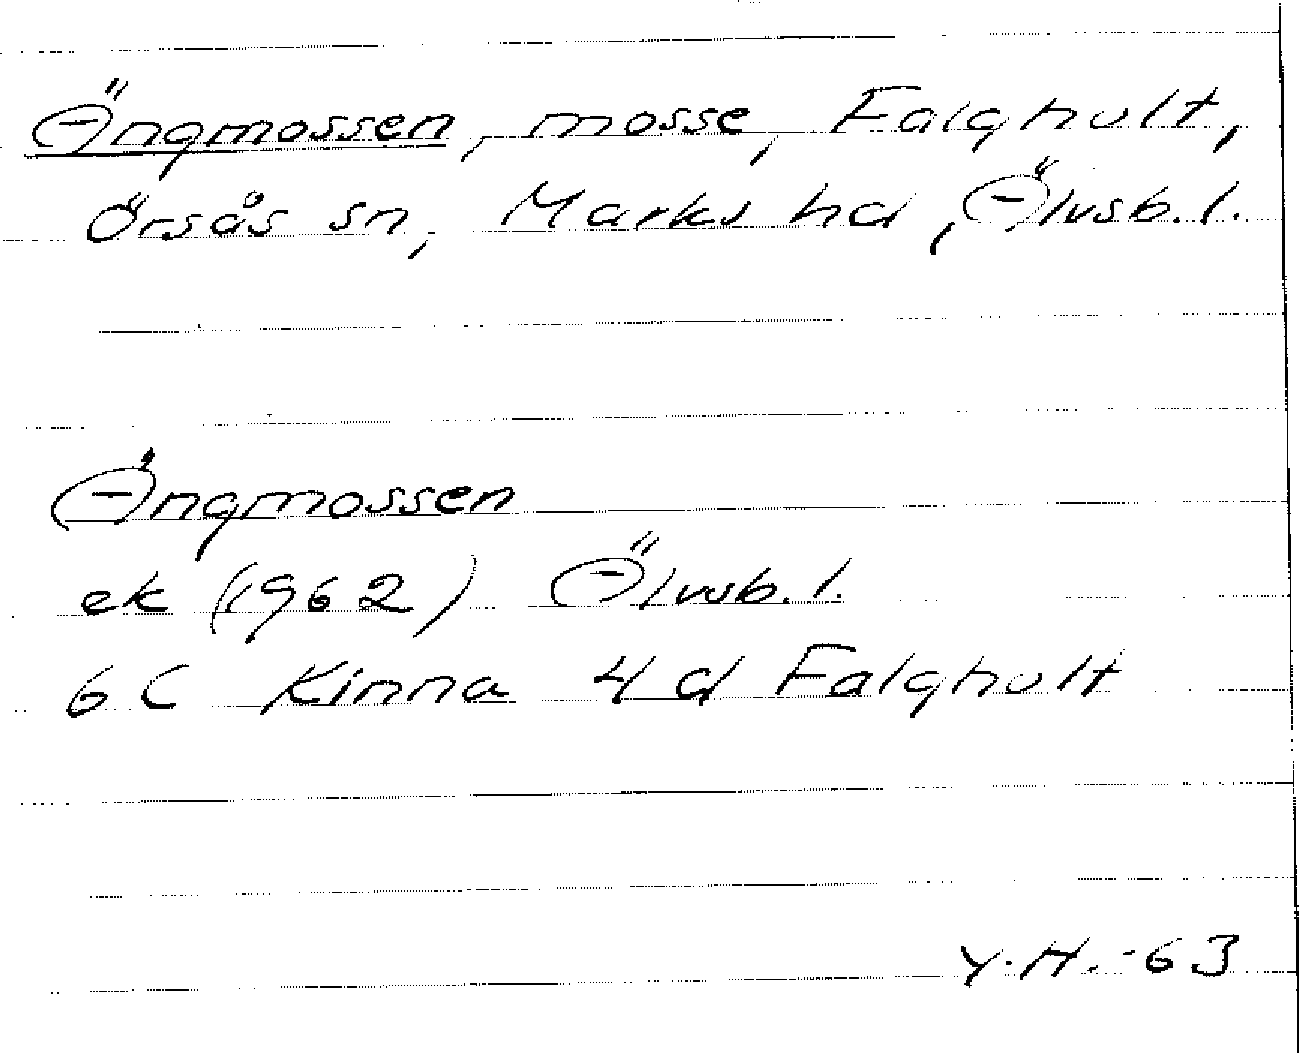 Ängmossen, mosse, Falghult,
Örsås sn, Marks hd, Älvsb. l.
Ängmossen
ek (1962) Älvsb. l.
6 C Kinna 4 d Falghult
Y.H. -63